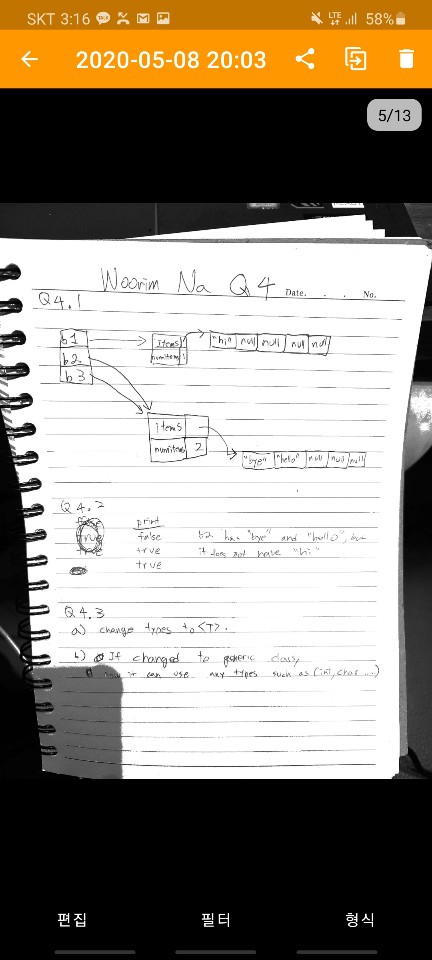 SKT 3:16 LTE 58%
2020-05-08 20:03
5/13
Woorim Na Q4 Date. . . . No.
Q4.1
b1
b2
b3
items
numitems 1
"hi" null null null null
items
numitems 2
"bye" "hello" null null null
Q4.2
print
true false b2 has "bye" and "hello", but
true true it does not have "hi"
true
Q4.3
a) change types to <T>.
b) If changed to generic class,
it can use any types such as (int, char ....)
편집 필터 형식